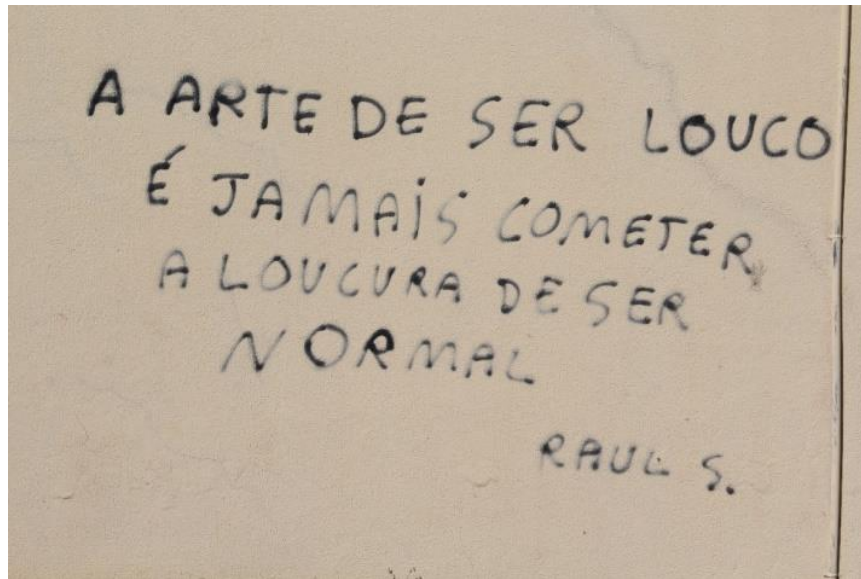 A ARTE DE SER LOUCO
É JAMAIS COMETER
A LOUCURA DE SER
NORMAL
RAUL S.